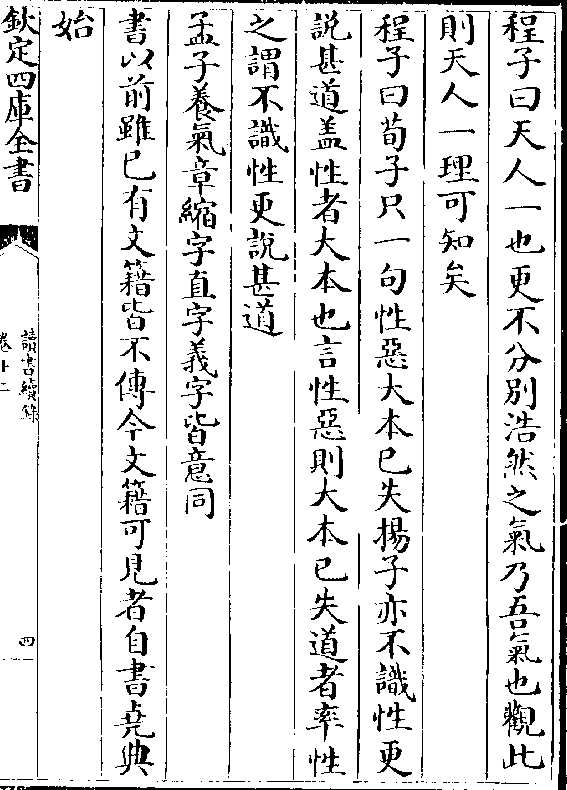 程子曰天人一也更不分別浩然之氣乃吾氣也觀此
則天人一理可知矣
程子曰荀子只一句性惡大本已失揚子亦不識性更
説甚道盖性者大本也言性惡則大本已失道者率性
之謂不識性更說甚道
孟子養氣章縮字直字義字皆意同
書以前雖已有文籍皆不傳今文籍可見者自書堯典
始
欽定四庫全書
讀書續錄
卷十二
四